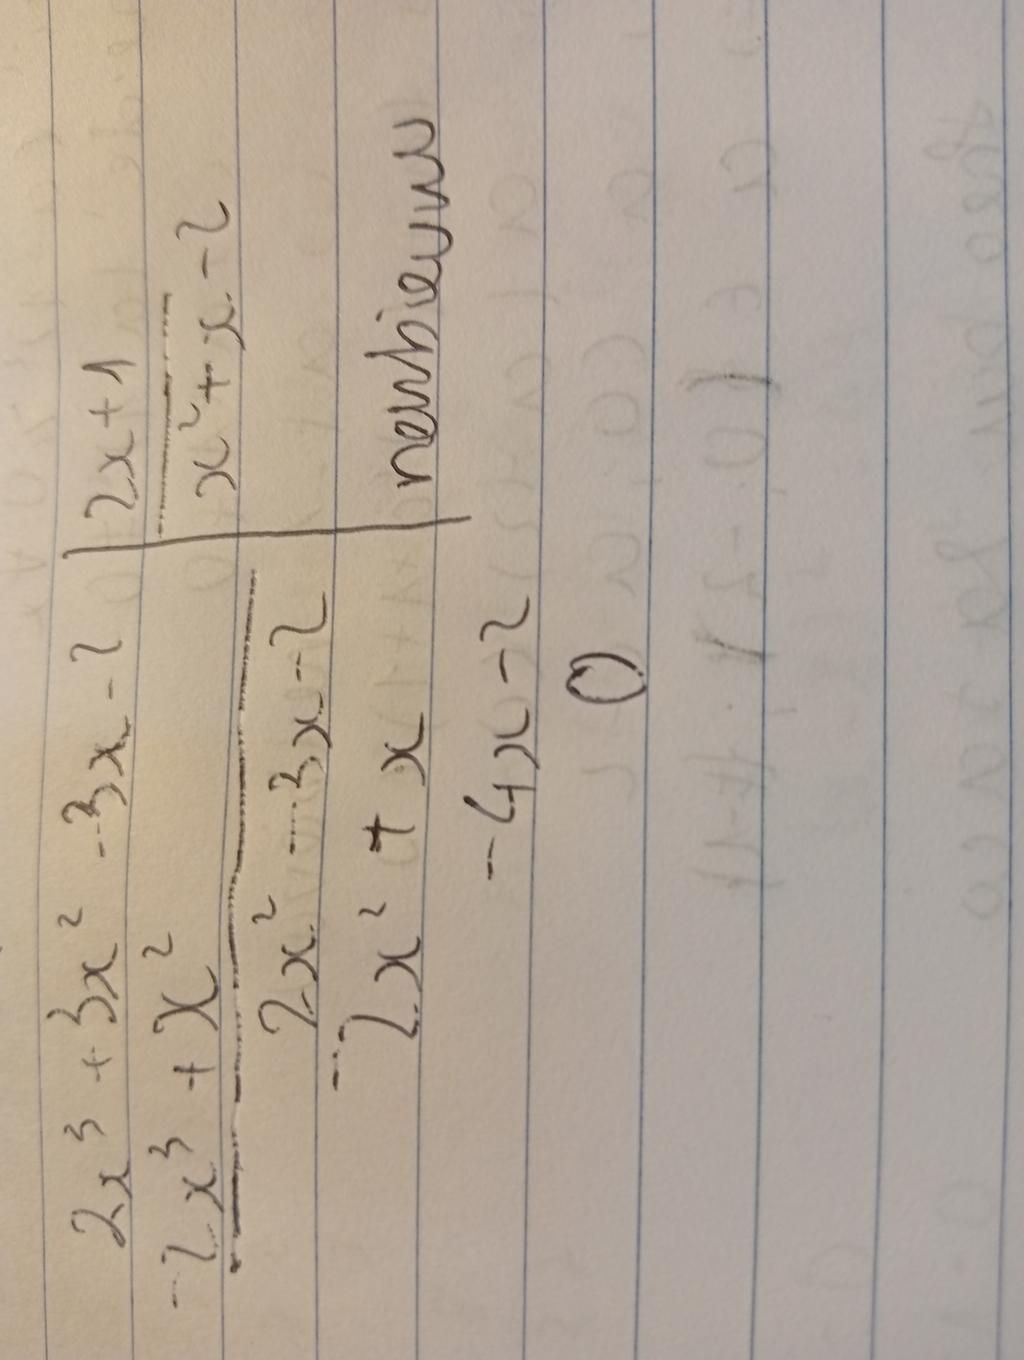 2x³ + 3x² - 3x - 2 | 2x + 1
- 2x³ + x² | x² + x - 2
2x² - 3x - 2
- 2x² + x
- 4x - 2
0